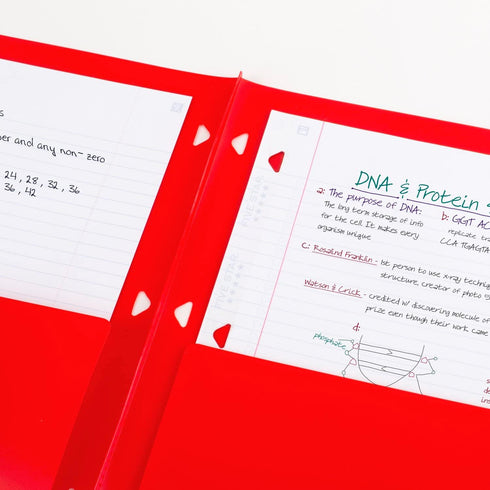 s
er and any non-zero
24, 28, 32, 36
36, 42
FIVE STAR
FIVE STAR
DNA & Protein
a: The purpose of DNA:
The long term storage of info
for the cell. It makes every
organism unique
b: GGT AC
replicate tra
CCA TGAGTA
c: Rosalind Franklin - 1st person to use x-ray techniq
structure creator of photo 5
Watson & Crick - credited w/ discovering molecule of
prize even though their work came
d:
phosphate
s
do
ins